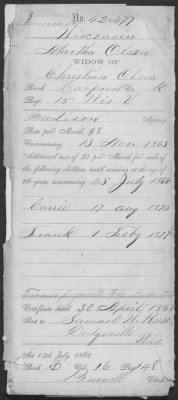 Increase
No. 42477
Wisconsin
Martha Olson
WIDOW OF
Christian Olson
Rank Corporal Co. K
Regt 15 Wis V
Madison Agency
Rate per Month, $8.
Commencing 13 Nov 1863
Additional sum of $2 per Month for each of
the following children, until arriving at the age of
16 years, commencing 25 July 1866
Carrie 17 Aug 1875
Frank 1 Feby 1877
Certificate dated 30 April 1868
Sent to Samuel W. Reese
Dodgeville
Wis
Act 14th July, 1862
Book C Vol. 16 Page 48
Clerk